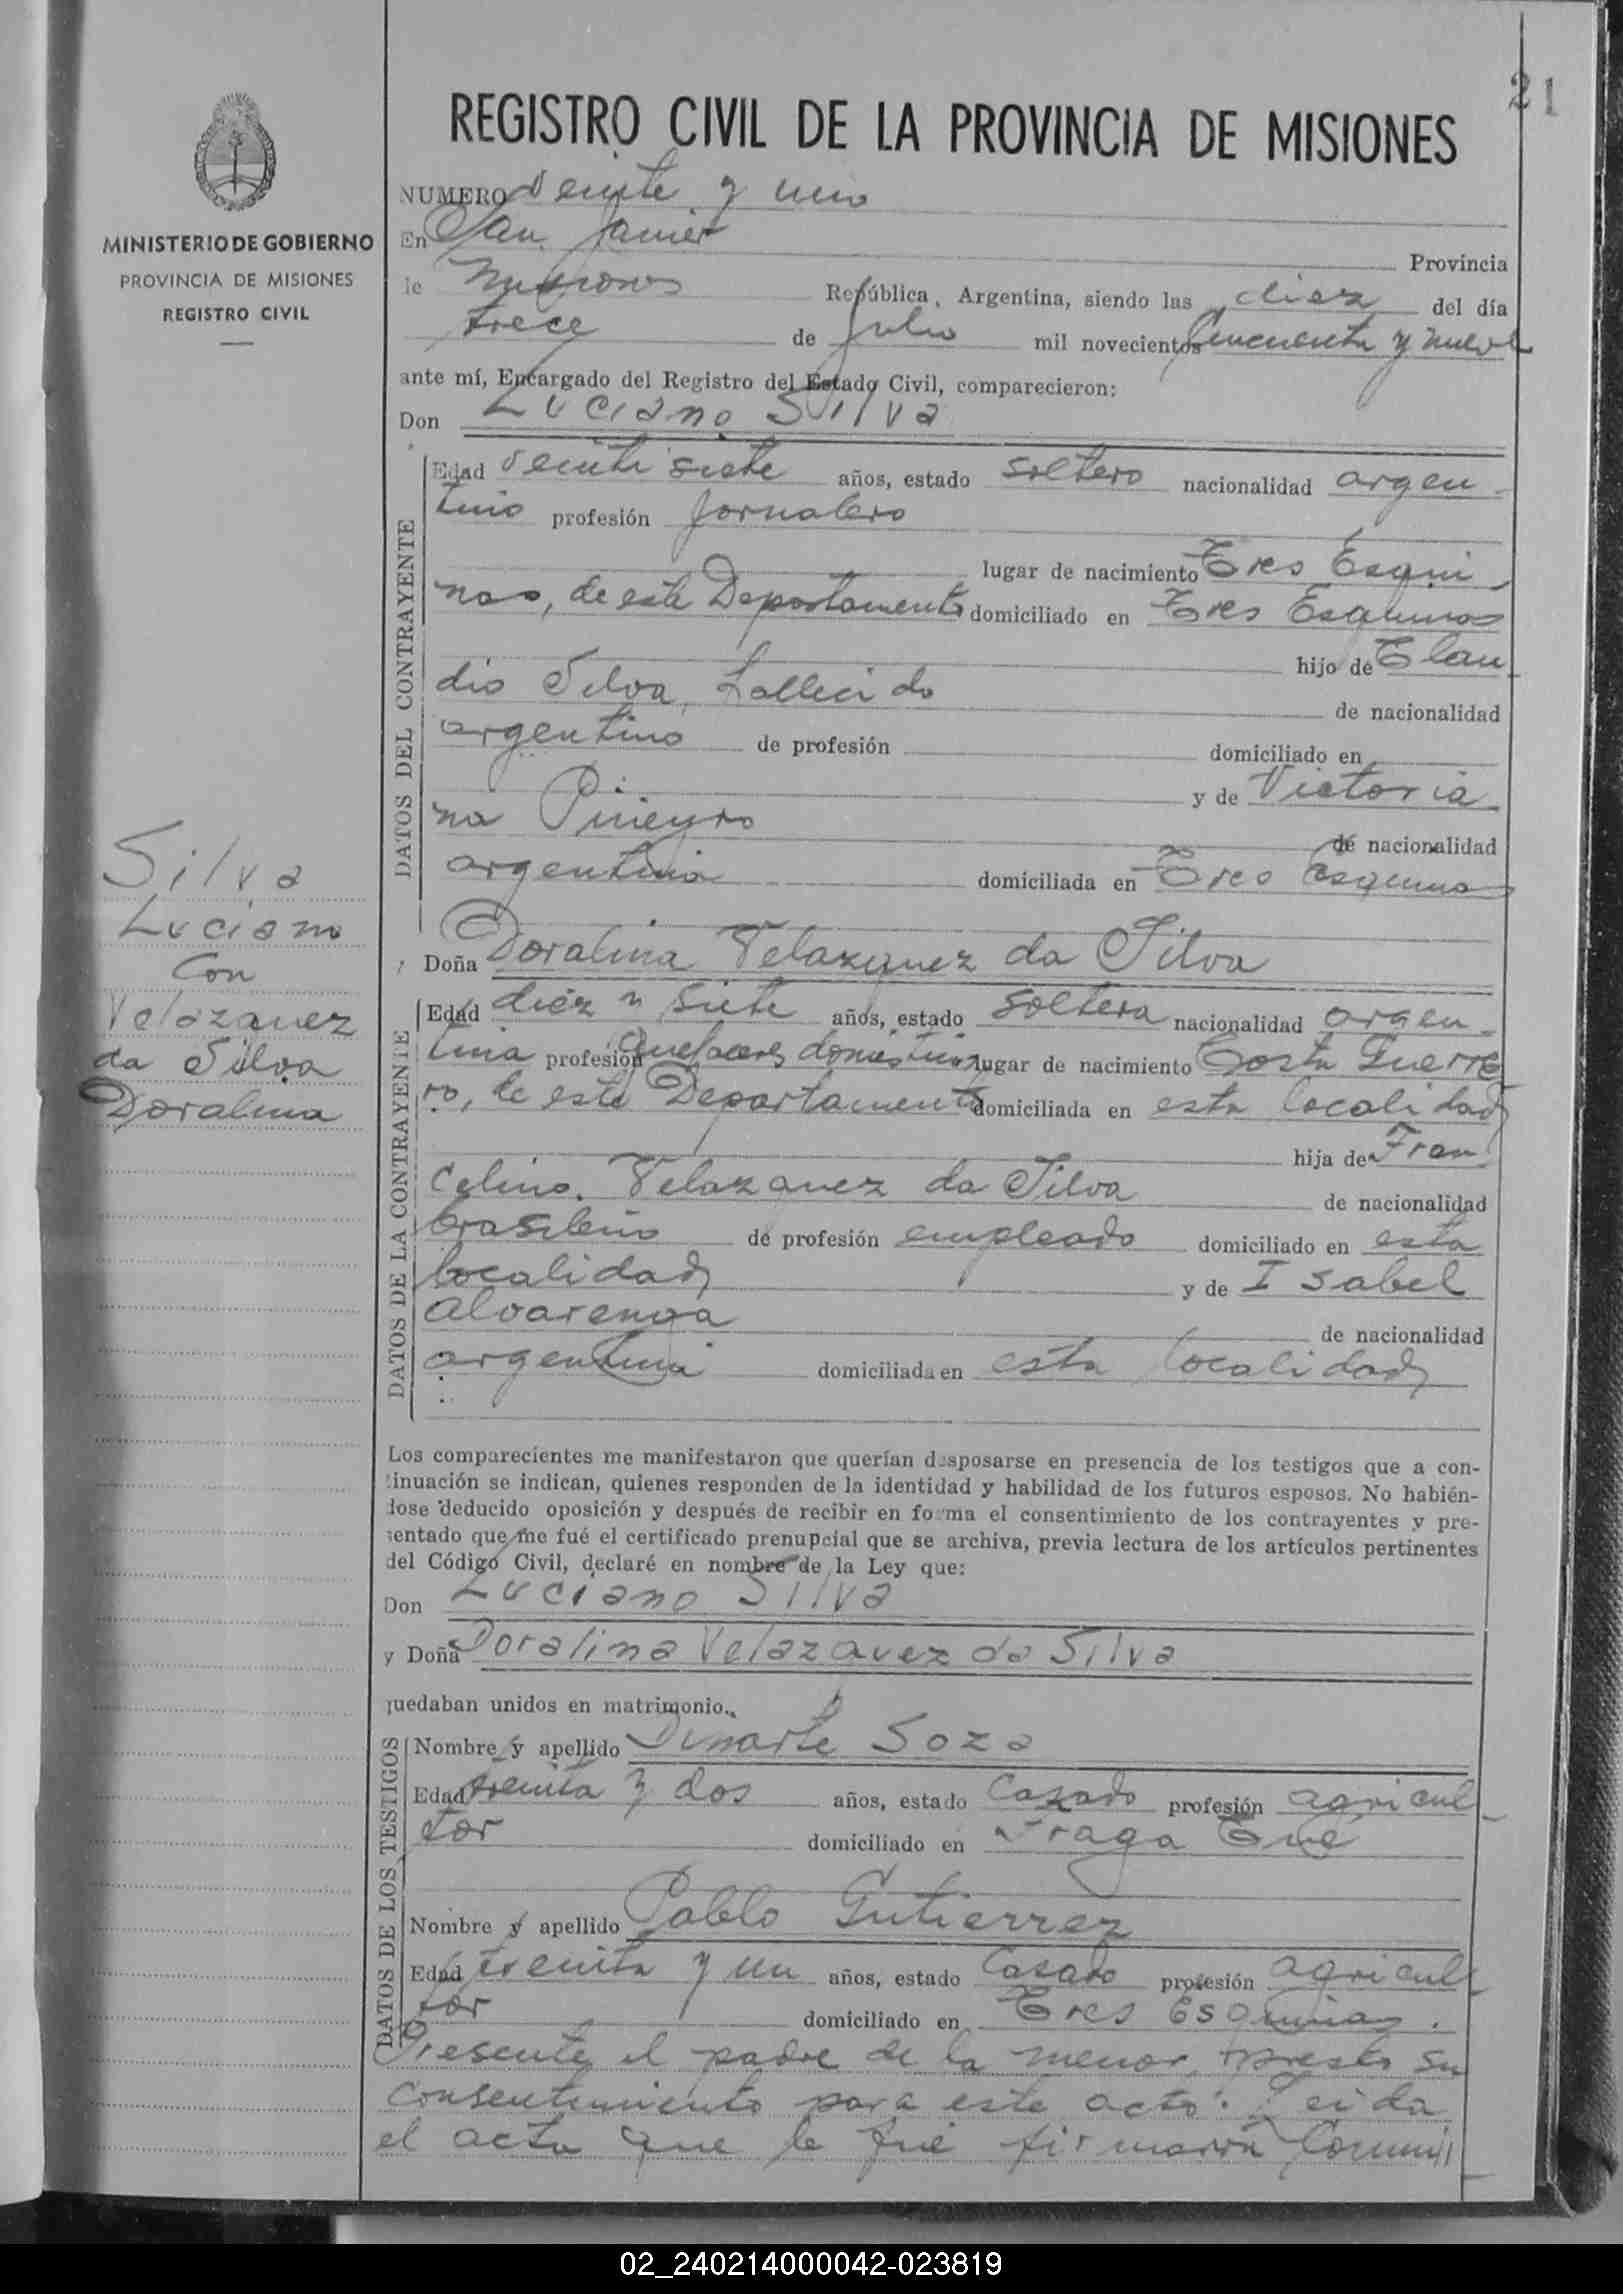 21
REGISTRO CIVIL DE LA PROVINCIA DE MISIONES
MINISTERIO DE GOBIERNO
PROVINCIA DE MISIONES
REGISTRO CIVIL
NUMERO Veinte y uno
En San Javier Provincia
de Misiones República Argentina, siendo las diez del día
trece de Julio mil novecientos Cincuenta y nueve
ante mí, Encargado del Registro del Estado Civil, comparecieron:
Don Luciano Silva
DATOS DEL CONTRAYENTE
Edad veinti siete años, estado soltero nacionalidad argen-
tino profesión Jornalero
lugar de nacimiento Tres Esqui-
nas, de este Departamento domiciliado en Tres Esquinas
hijo de Clau
dio Silva, fallecido de nacionalidad
argentino de profesión domiciliado en
y de Victoria
na Piñeyro de nacionalidad
argentina domiciliada en Tres Esquinas
Silva
Luciano
Con
Velazquez
da Silva
Doralina
Doña Doralina Velazquez da Silva
DATOS DE LA CONTRAYENTE
Edad diez y siete años, estado soltera nacionalidad argen-
tina profesión Quehaceres domésticos lugar de nacimiento Costa Guerre
ro, de este Departamento domiciliada en esta localidad
hija de Fran
celino Velazquez da Silva de nacionalidad
brasileño de profesión empleado domiciliado en esta
localidad y de Isabel
Alvarenga de nacionalidad
argentina domiciliada en esta localidad
Los comparecientes me manifestaron que querían desposarse en presencia de los testigos que a con-
tinuación se indican, quienes responden de la identidad y habilidad de los futuros esposos. No habién-
dose deducido oposición y después de recibir en forma el consentimiento de los contrayentes y pre-
sentado que me fué el certificado prenupcial que se archiva, previa lectura de los artículos pertinentes
del Código Civil, declaré en nombre de la Ley que:
Don Luciano Silva
y Doña Doralina Velazquez da Silva
quedaban unidos en matrimonio.
DATOS DE LOS TESTIGOS
Nombre y apellido Dinarte Soza
Edad treinta y dos años, estado Casado profesión agricul-
tor domiciliado en
Nombre y apellido Pablo Gutierrez
Edad treinta y un años, estado Casado profesión agricul-
tor domiciliado en Tres Esquinas.
Presente el padre de la menor, presta su
consentimiento para este acto. Leida
el acta que le fué firmaron Conmi
02_240214000042-023819